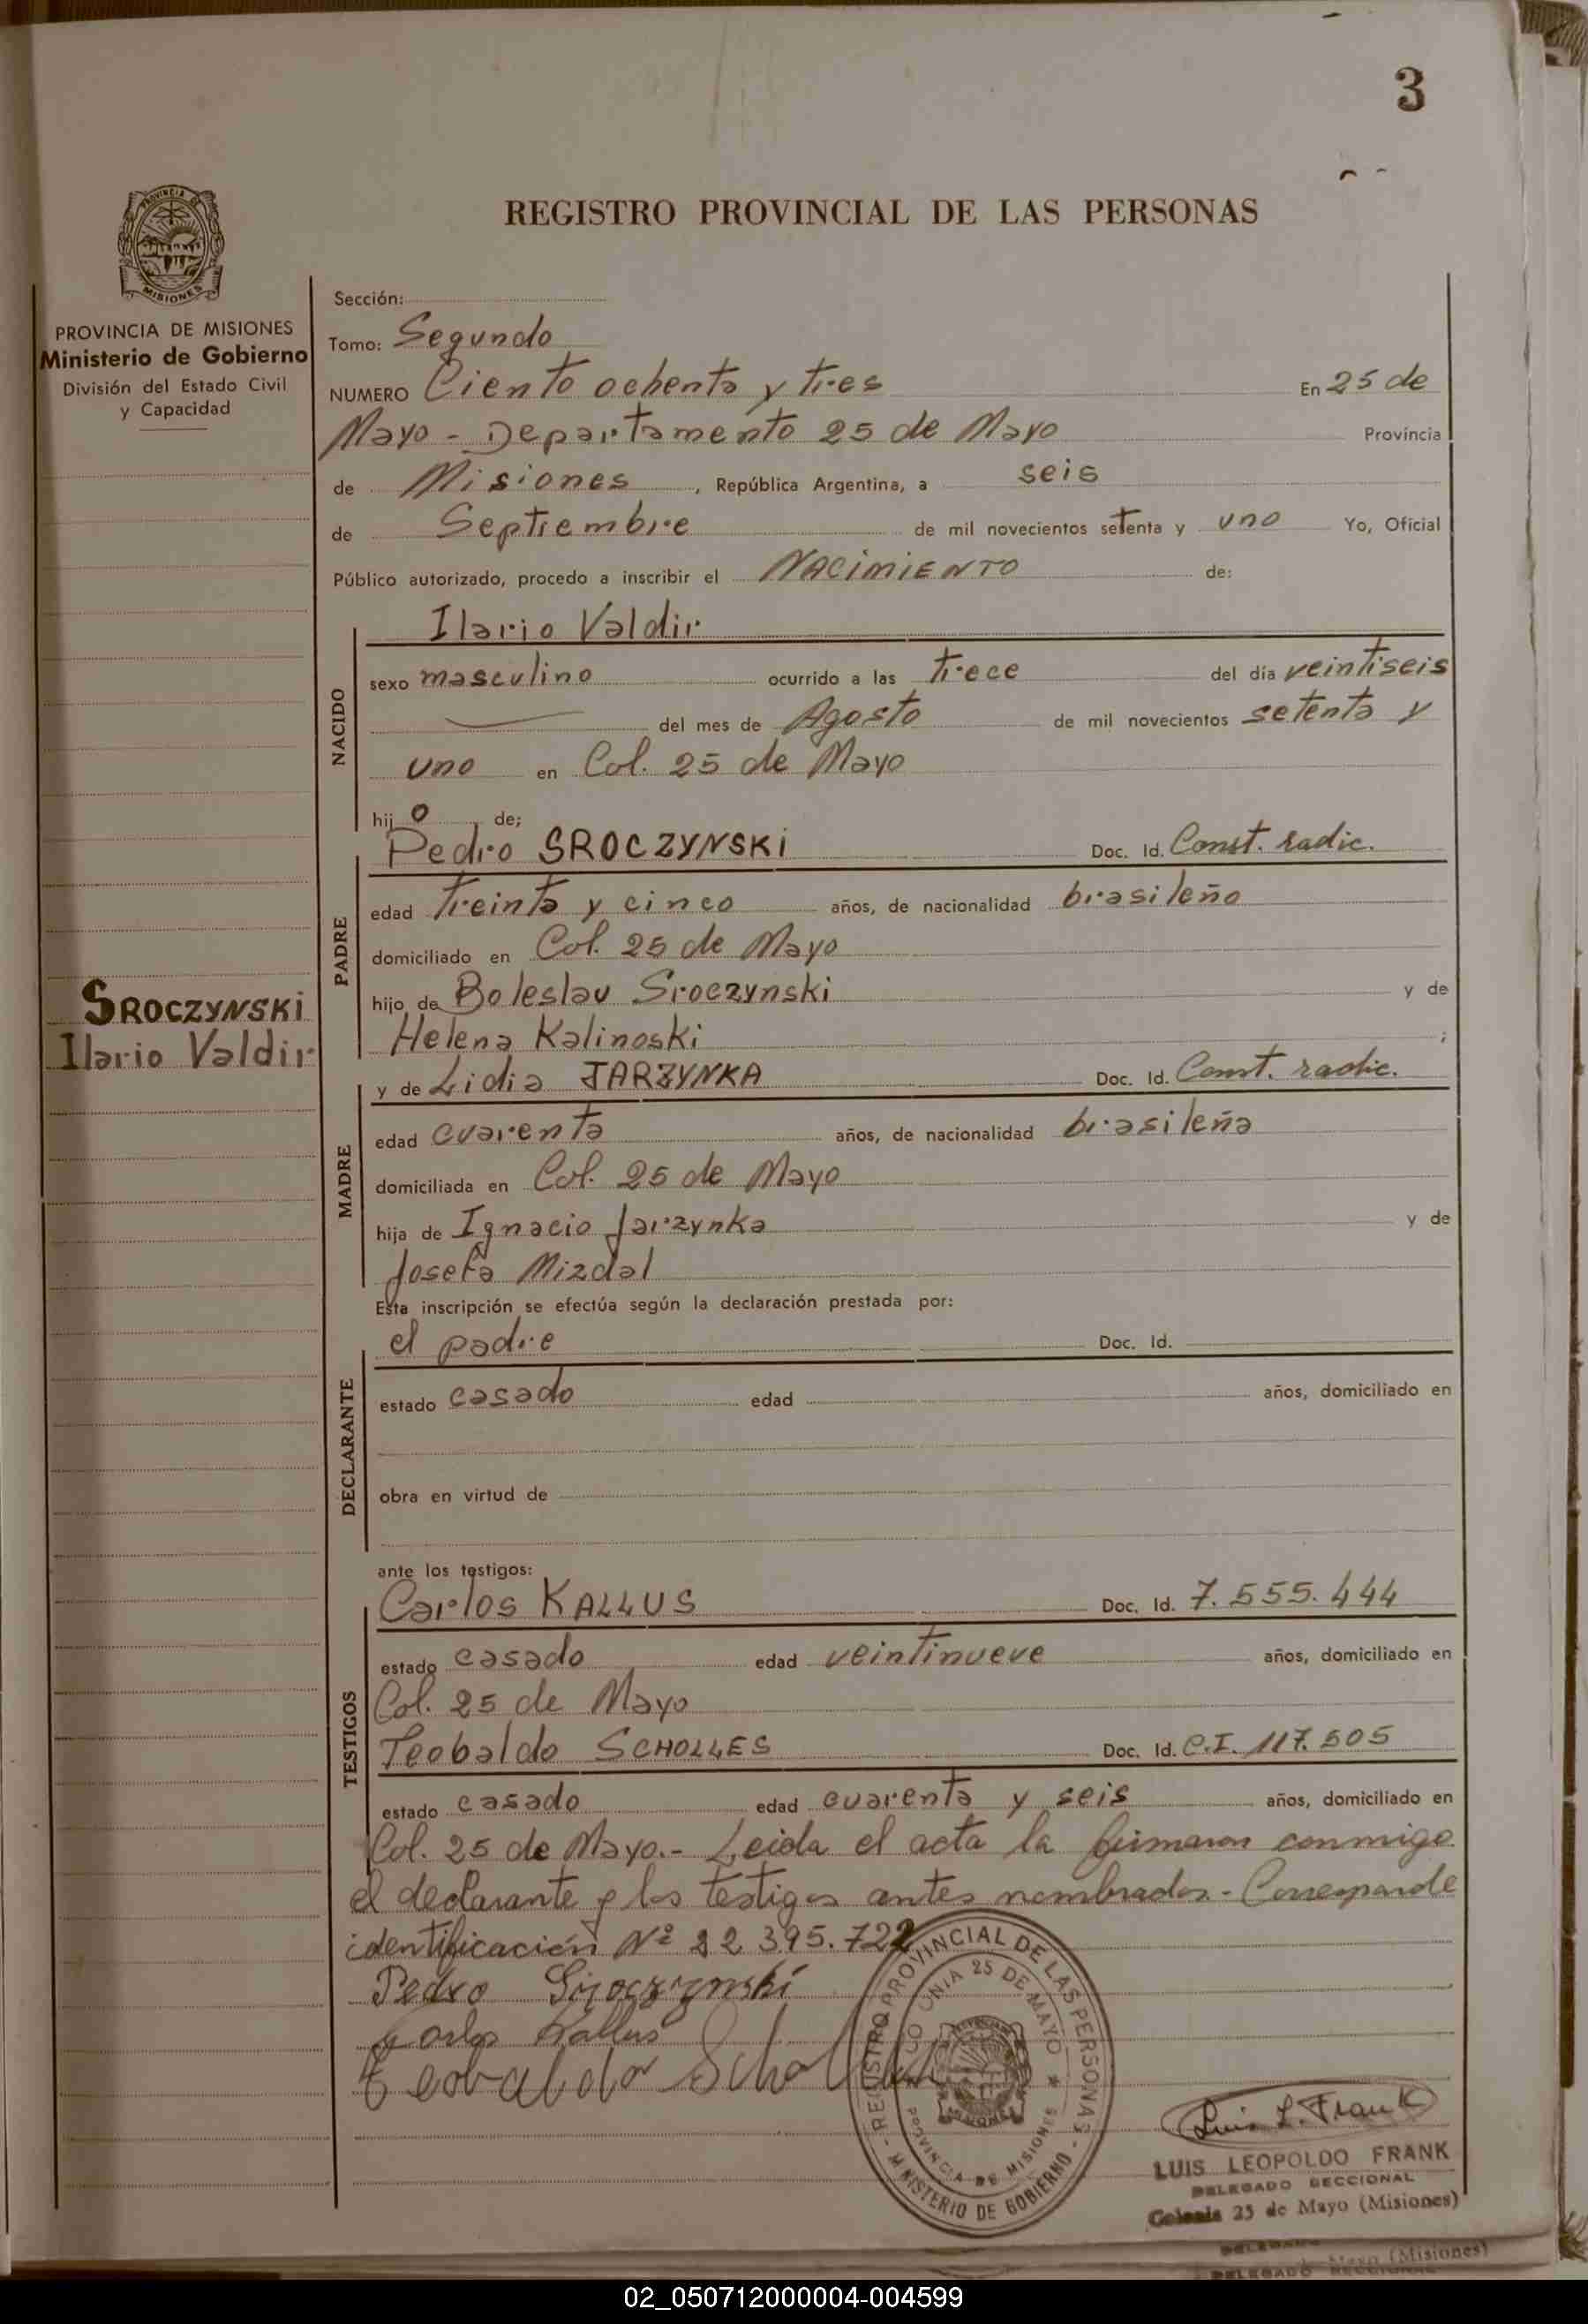 3
REGISTRO PROVINCIAL DE LAS PERSONAS
PROVINCIA DE MISIONES
Ministerio de Gobierno
División del Estado Civil
y Capacidad
SROCZYNSKI
Ilario Valdir
Sección:
Tomo: Segundo
NUMERO Ciento ochenta y tres En 25 de
Mayo - Departamento 25 de Mayo Provincia
de Misiones, República Argentina, a seis
de Septiembre de mil novecientos setenta y uno Yo, Oficial
Público autorizado, procedo a inscribir el NACIMIENTO de:
NACIDO
Ilario Valdir
sexo masculino ocurrido a las trece del día veintiseis
del mes de Agosto de mil novecientos setenta y
uno en Col. 25 de Mayo
hij o de;
PADRE
Pedro SROCZYNSKI Doc. Id. Const. radic.
edad treinta y cinco años, de nacionalidad brasileño
domiciliado en Col. 25 de Mayo
hijo de Boleslav Sroczynski y de
Helena Kalinoski ;
MADRE
y de Lidia JARZYNKA Doc. Id. Const. radic.
edad cuarenta años, de nacionalidad brasileña
domiciliada en Col. 25 de Mayo
hija de Ignacio Jarzynka y de
Josefa Mizdal
Esta inscripción se efectúa según la declaración prestada por:
DECLARANTE
el padre Doc. Id.
estado casado edad años, domiciliado en
obra en virtud de
ante los testigos:
TESTIGOS
Carlos KALLUS Doc. Id. 7.555.444
estado casado edad veintinueve años, domiciliado en
Col. 25 de Mayo
Teobaldo SCHOLLES Doc. Id. C.I. 117.505
estado casado edad cuarenta y seis años, domiciliado en
Col. 25 de Mayo.- Leida el acta la firmaron conmigo
el declarante y los testigos antes nombrados.- Corresponde
identificación Nº 22.395.722
Pedro Sroczynski
Carlos Kallus
Teobaldo Scholles
REGISTRO PROVINCIAL DE LAS PERSONAS - MINISTERIO DE GOBIERNO -
COLONIA 25 DE MAYO * PROVINCIA DE MISIONES *
Luis L. Frank
LUIS LEOPOLDO FRANK
DELEGADO SECCIONAL
Colonia 25 de Mayo (Misiones)
Mayo (Misiones)
DELEGADO SECCIONAL
02_050712000004-004599